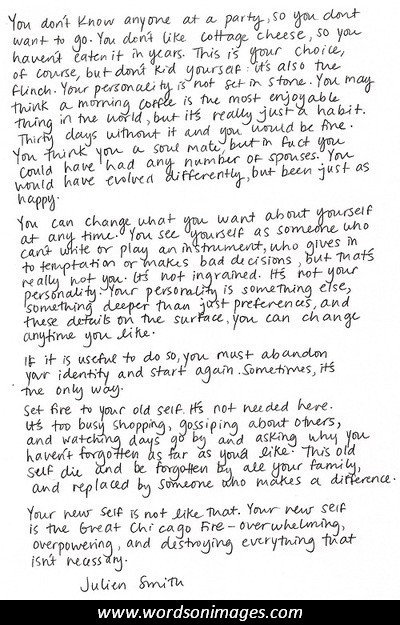 You don't know anyone at a party, so you dont
want to go. You don't like cottage cheese, so you
haven't eaten it in years. This is your choice,
of course, but don't kid yourself: it's also the
flinch. Your personality is not set in stone. You may
think a morning coffee is the most enjoyable
thing in the world, but it's really just a habit.
Thirty days without it and you would be fine.
You think you a soul mate, but in fact you
could have had any number of spouses. You
would have evolved differently, but been just as
happy.
You can change what you want about yourself
at any time. You see yourself as someone who
can't write or play an instrument, who gives in
to temptation or makes bad decisions, but that's
really not you. It's not ingrained. It's not your
personality. Your personality is something else,
something deeper than just preferences, and
these details on the surface, you can change
anytime you like.
If it is useful to do so, you must abandon
your identity and start again. Sometimes, it's
the only way.
Set fire to your old self. It's not needed here.
It's too busy shopping, gossiping about others,
and watching days go by and asking why you
haven't forgotten as far as you'd like. This old
self die and be forgotten by all your family,
and replaced by someone who makes a difference.
Your new self is not like that. Your new self
is the Great Chicago Fire – overwhelming,
overpowering, and destroying everything that
isn't necessary.
Julien Smith
www.wordsonimages.com